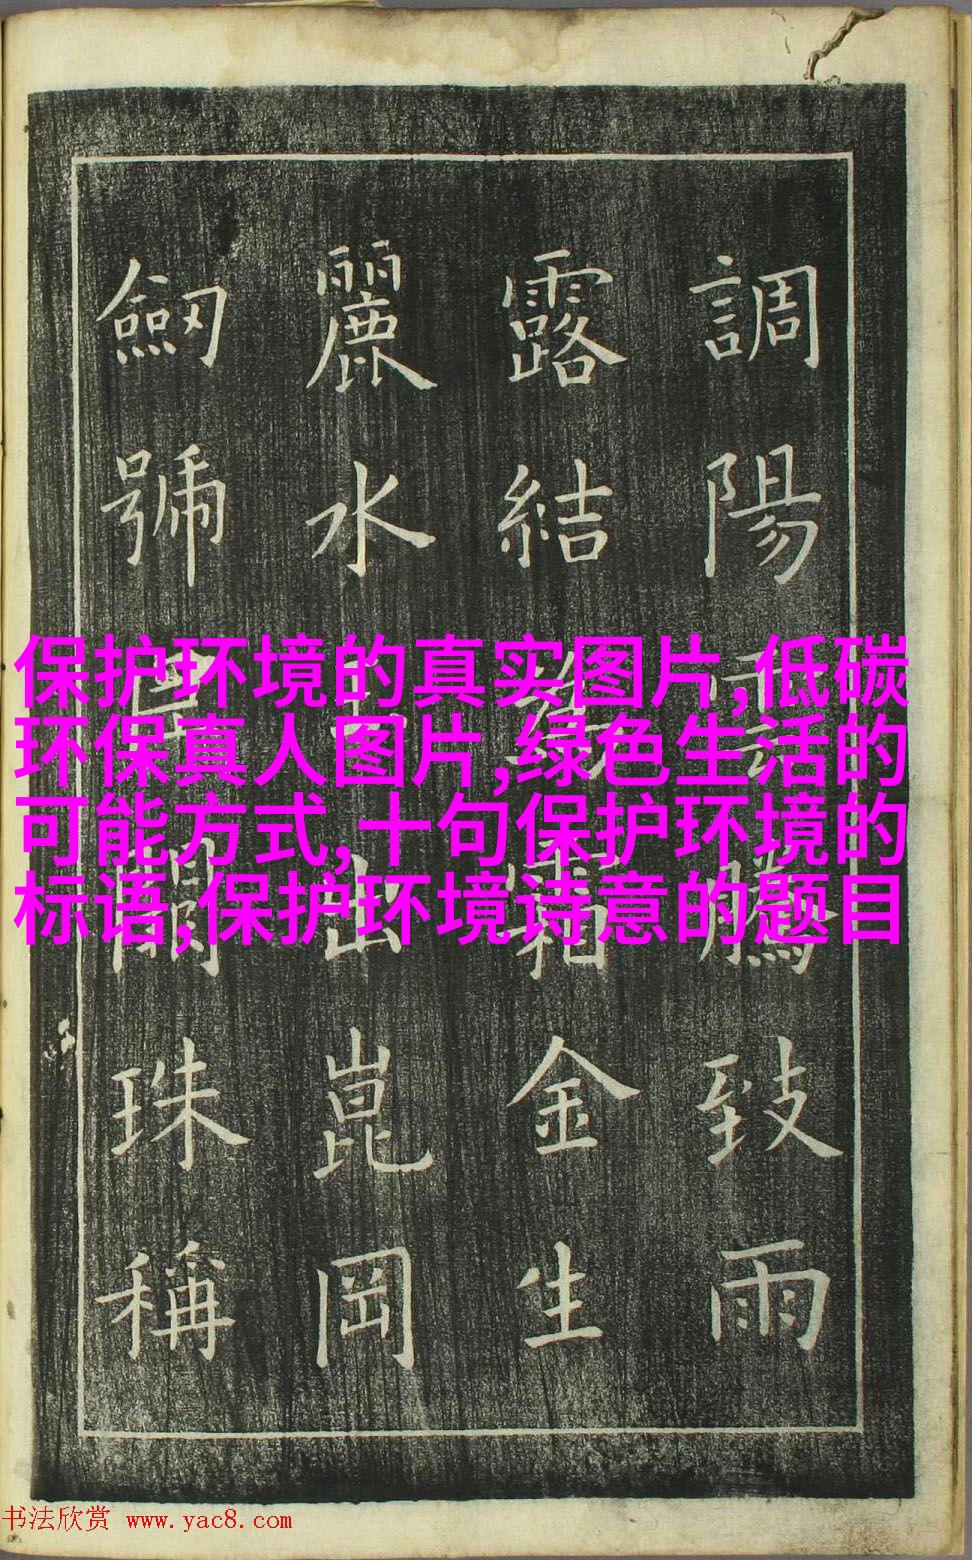 調陽雲騰致雨
露結為霜金生
麗水玉出崑岡
劒號巨闕珠稱
保护环境的真实图片,低碳
环保真人图片,绿色生活的
可能方式,十句保护环境的
标语,保护环境诗意的题目
书法欣赏 www.yac8.com